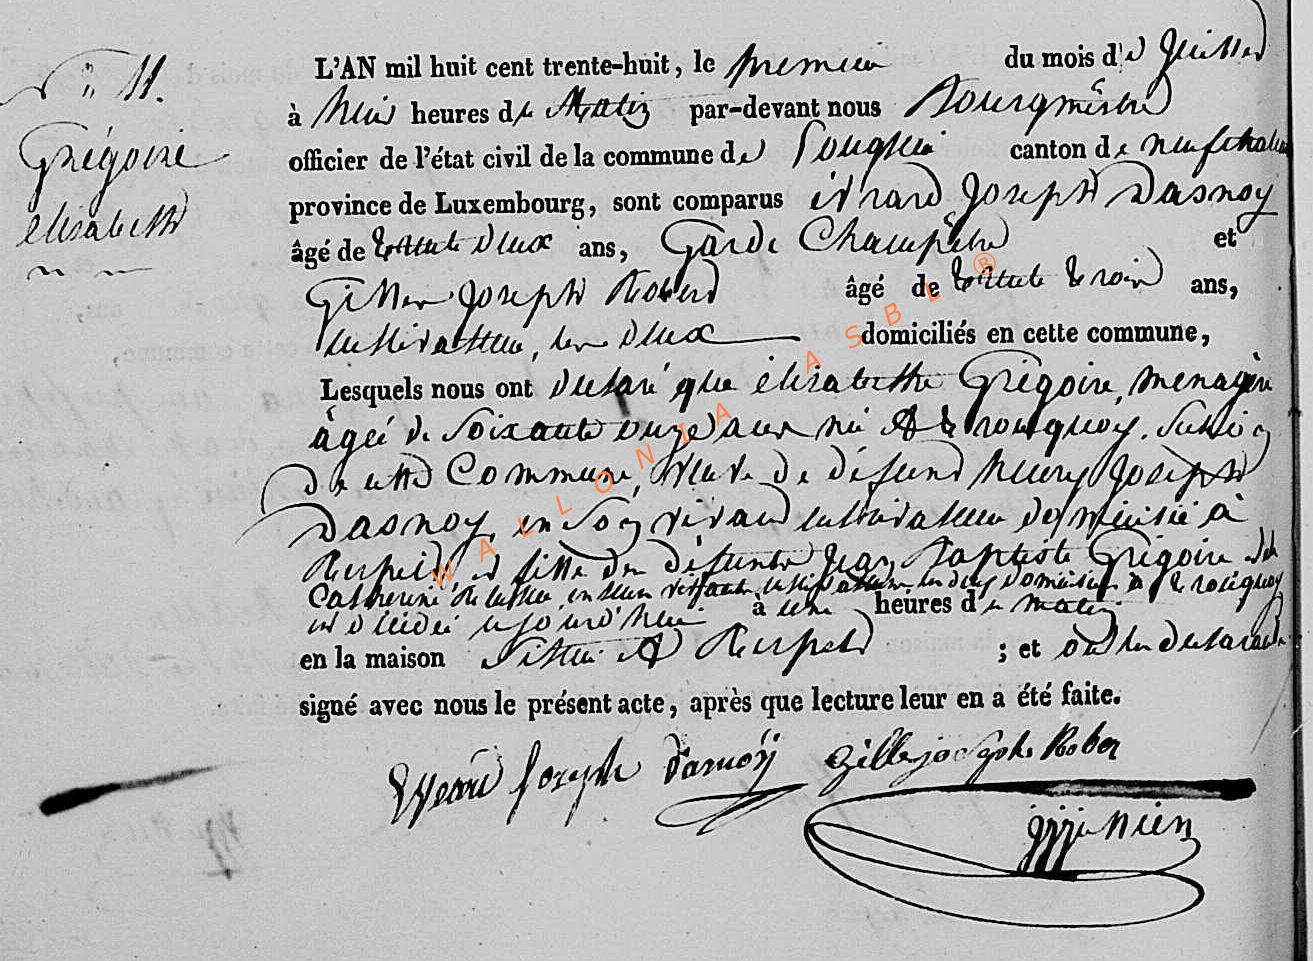 N° 11.
Grégoire
elisabeth
L'AN mil huit cent trente-huit, le premier du mois de Juillet
à huit heures de Matin par-devant nous Bourgmêstre
officier de l'état civil de la commune de canton de neufchateau
province de Luxembourg, sont comparus evrard Joseph Dasnoy
âgé de trente deux ans, Garde Champêtre et
Gilles Joseph Robert âgé de trente trois ans,
cultivateur, les deux domiciliés en cette commune,
Lesquels nous ont declaré que elisabethe Grégoire, menagère
âgée de Soixante onze ans né A
de cette Commune, veuve de défunt henry Joseph
Dasnoy, en Son vivant cultivateur domicilié à
et fille des défunts Jean Baptiste Grégoire et de
Catherine en leur vivant cultivateur domiciliés à
est décédé aujourd'hui à une heures de matin
en la maison Située A ; et ont les declarants
signé avec nous le présent acte, après que lecture leur en a été faite.
Evrard Joseph Dasnoÿ Gille joseph Rober
WALLONIA ASBL ®